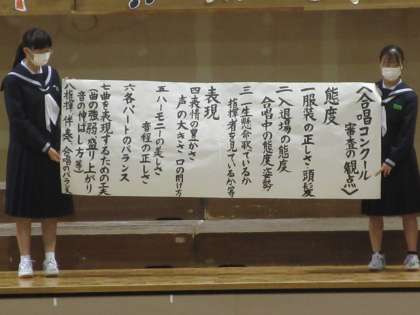 〈合唱コンクール
審査の観点〉
態度
一服装の正しさ・頭髪
二入退場の態度
合唱中の態度・姿勢
三一生懸命歌っているか
指揮者を見ているか等
表現
四表情の豊かさ
声の大きさ・口の開け方
五ハーモニーの美しさ
音程の正しさ
六各パートのバランス
七曲を表現するための工夫
(曲の強弱・盛り上がり
音の伸ばし方等)
八指揮・伴奏・合唱のバランス